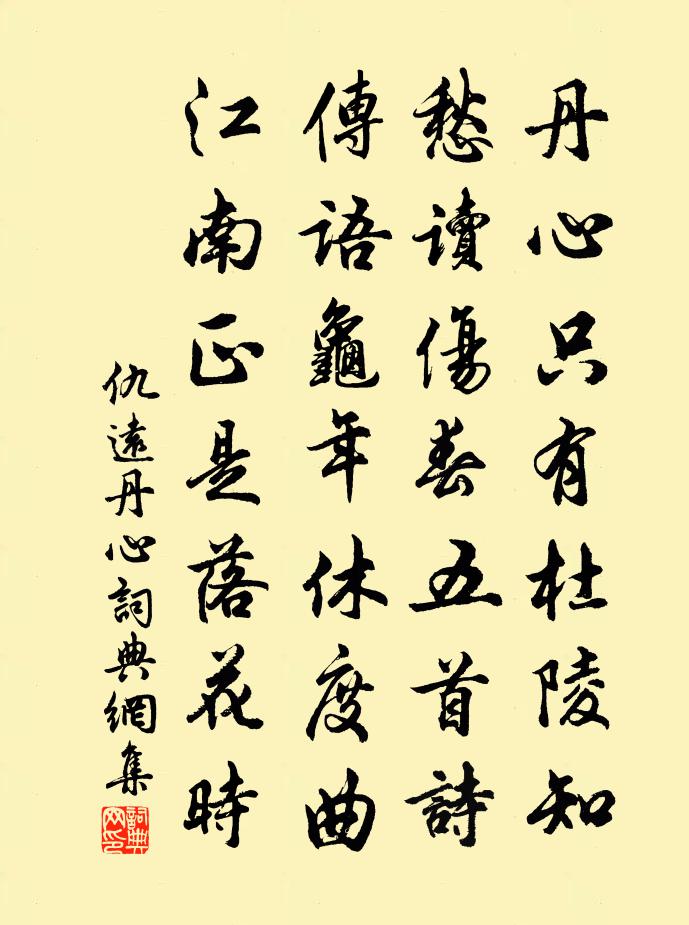 丹心只有杜陵知
愁讀傷春五首詩
傳語龜年休度曲
江南正是落花時
仇遠丹心詞典網集
詞典网印